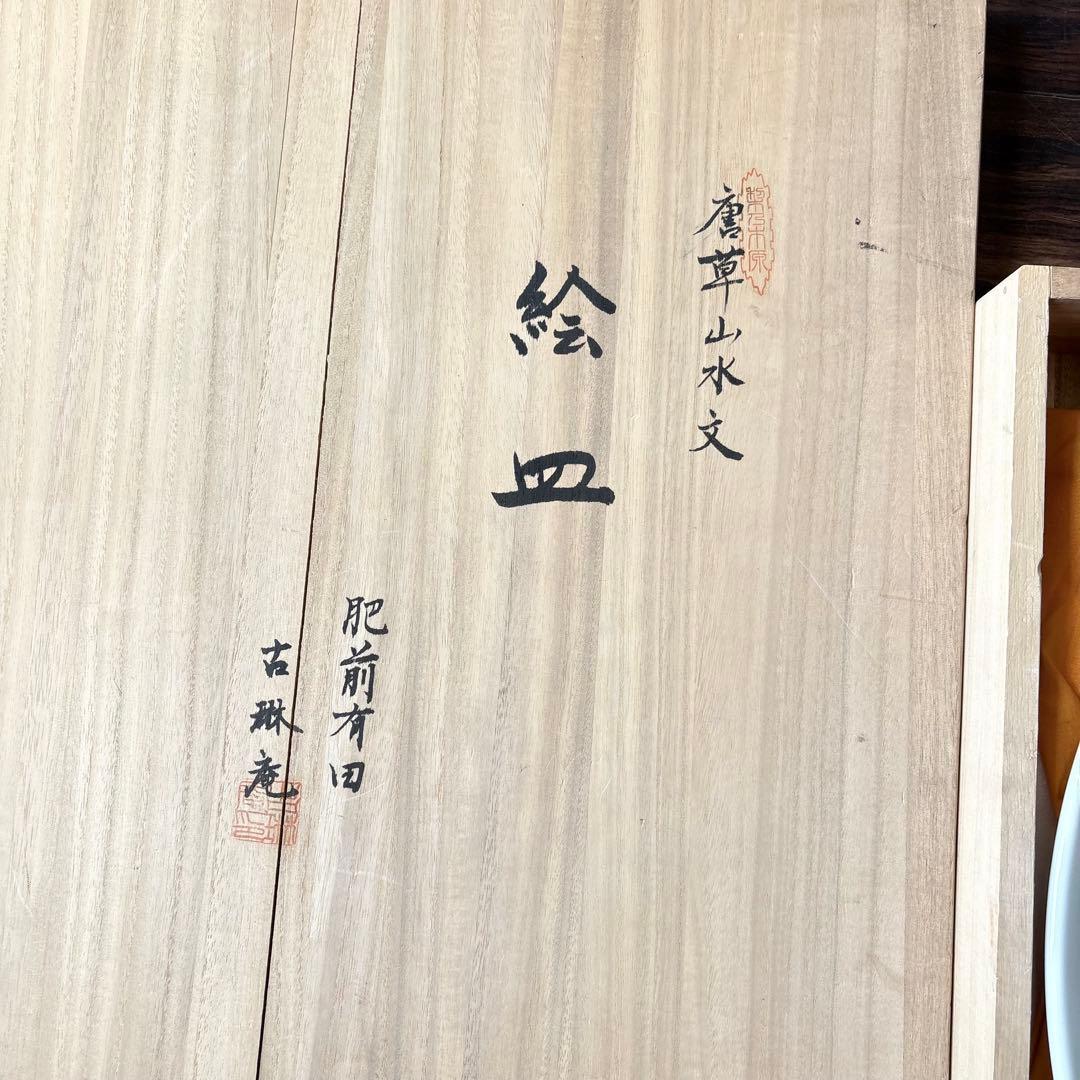 唐草山水文
絵皿
肥前有田
古琳庵